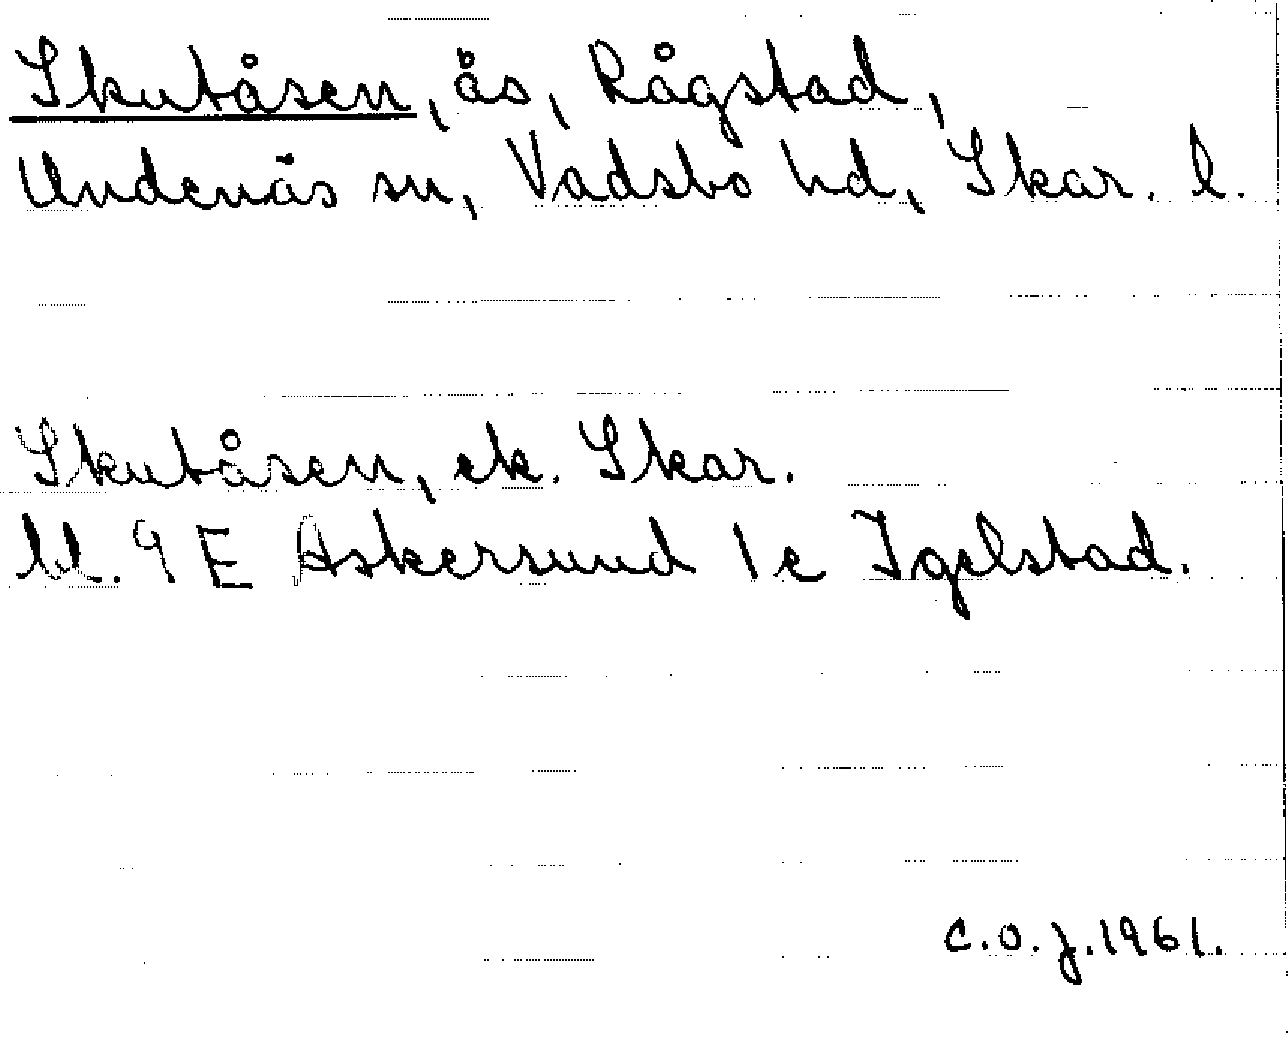 Skutåsen, ås, Rågstad,
Undenäs sn, Vadsbo hd, Skar. l.
Skutåsen, ek. Skar.
bl. 9 E Askersund 1 c Igelstad.
C.O.J. 1961.